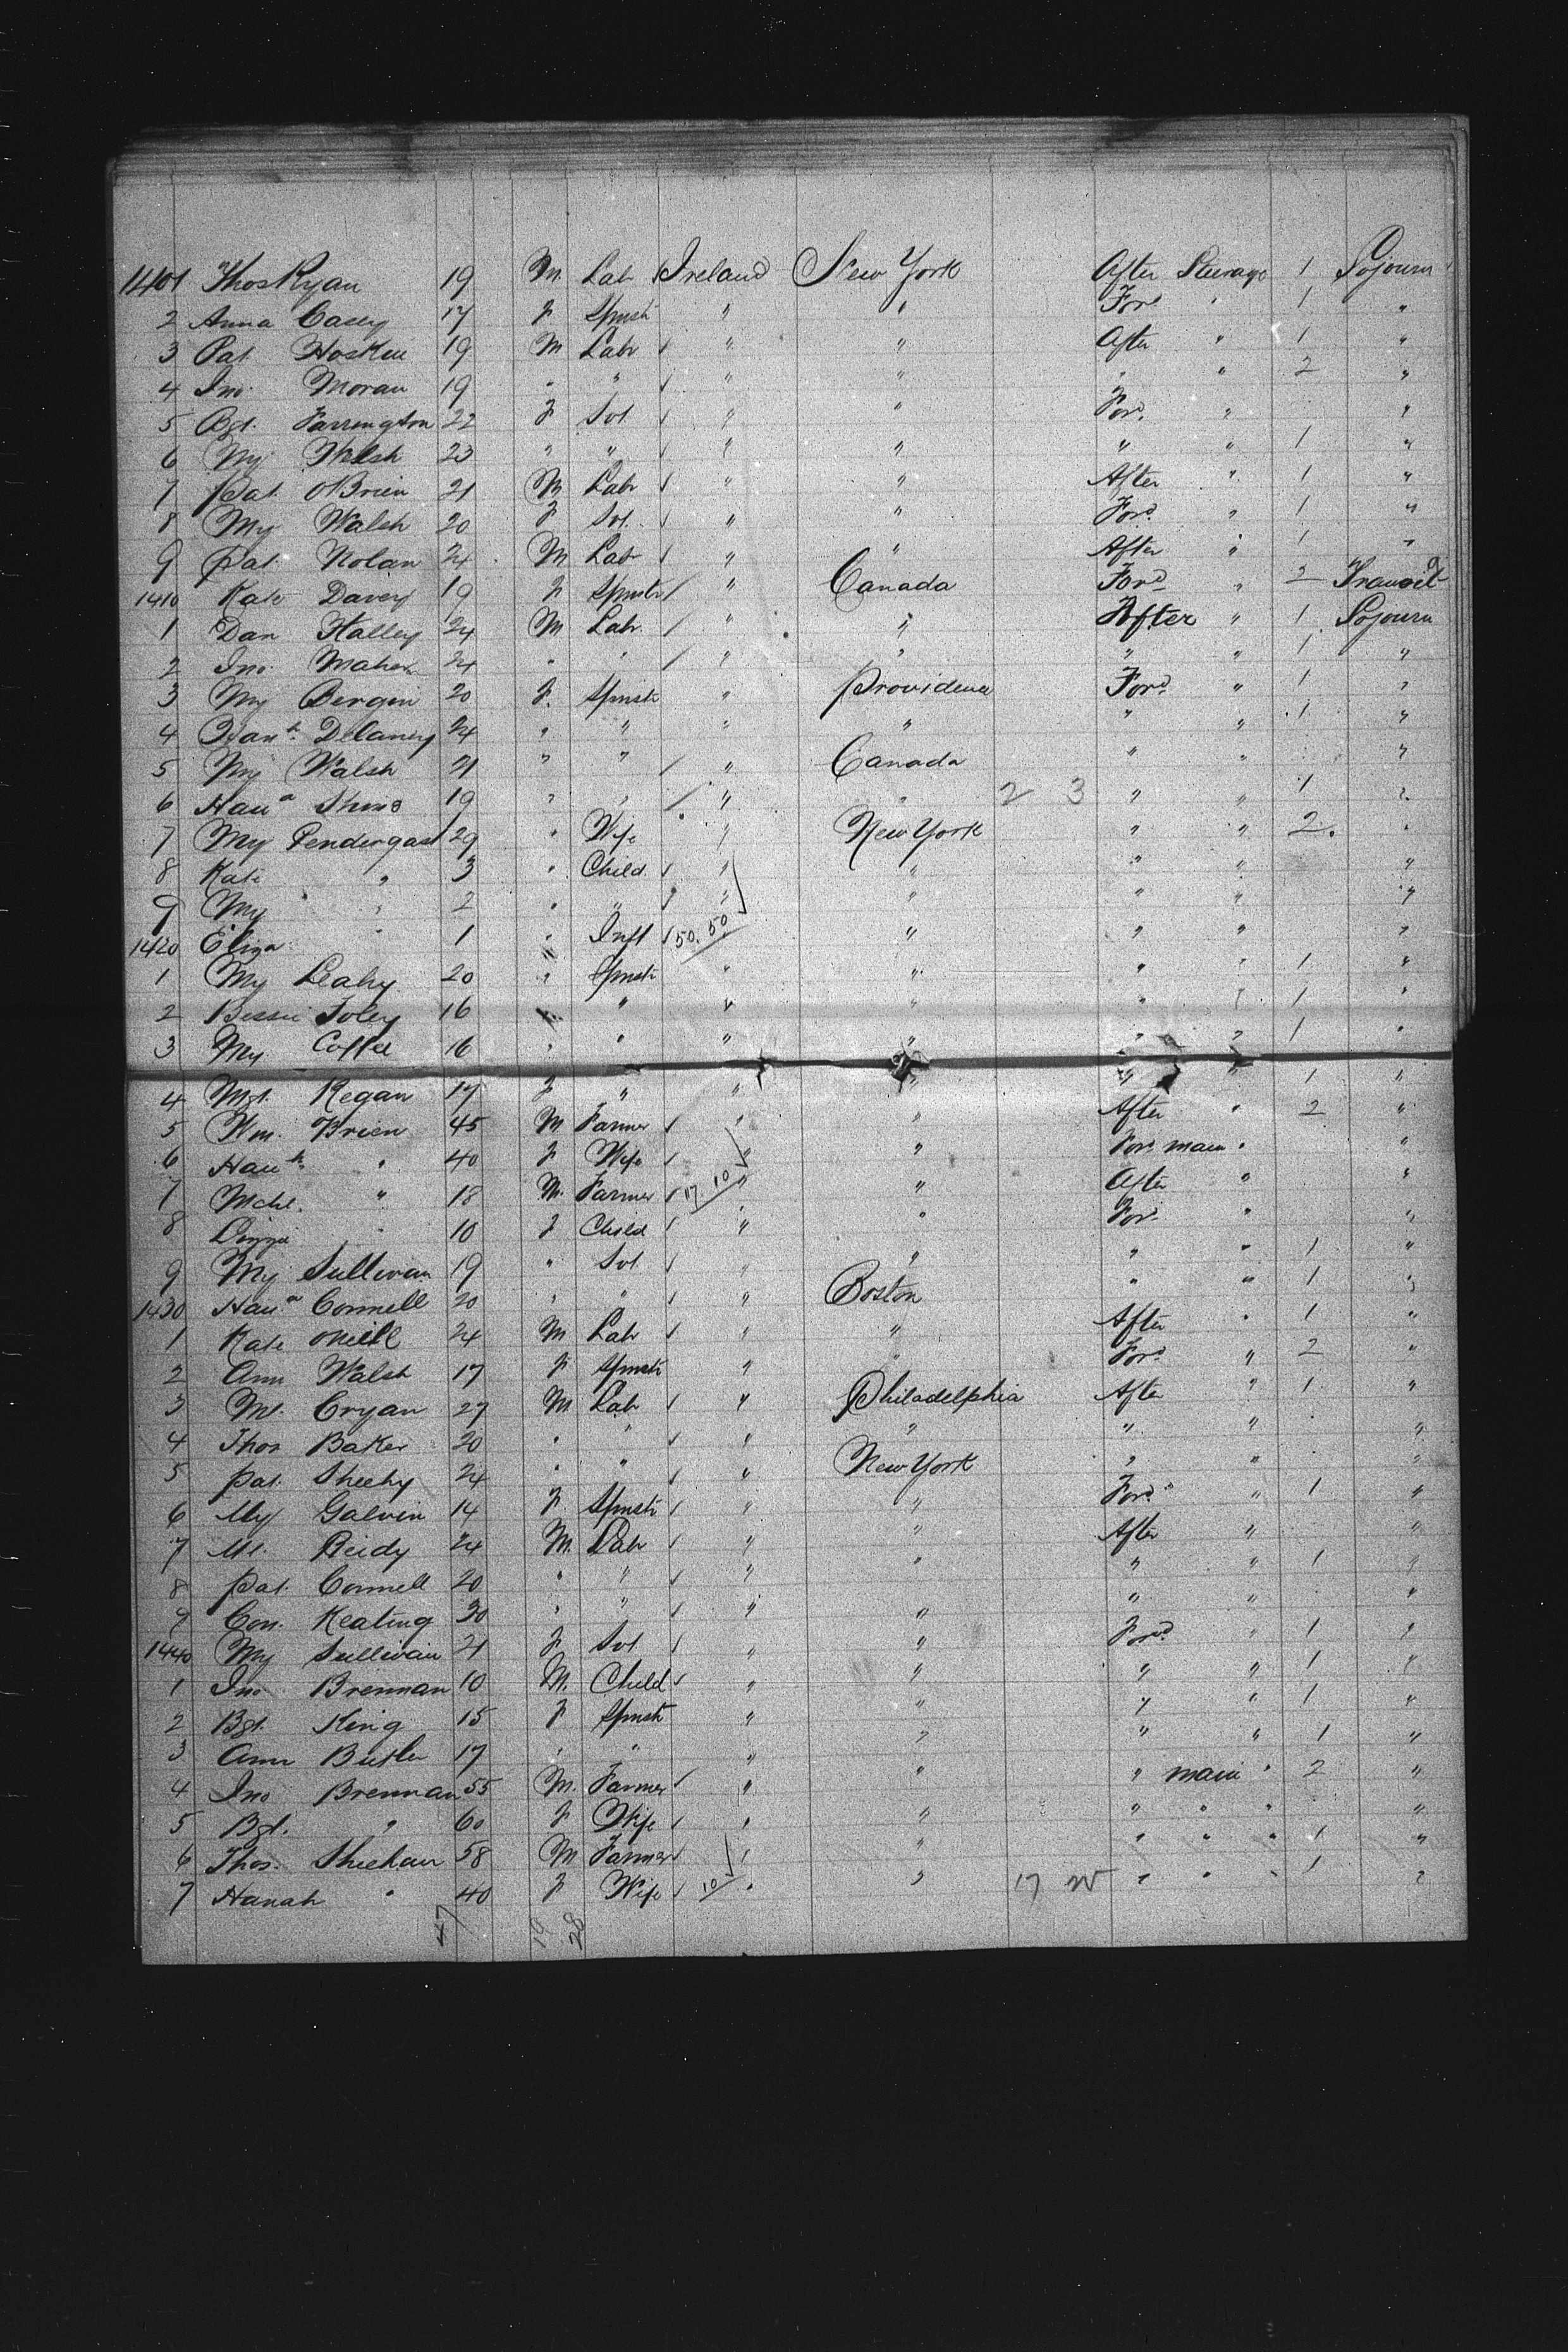 1401 Thos Ryan 19 M. Lab Ireland New York After Steerage 1 Sojourn
2 Anna Casey 17 F Spinstr " " Ford " 1 "
3 Pat Hoskin 19 M Labr " " After " 1 "
4 Jno. Moran 19 " " " " " " 2 "
5 Bgt. Farrington 22 F Svt " " Ford. " "
6 My Walsh 23 " " " " " " 1 "
7 Pat. OBrien 21 M Labr " " After " 1 "
8 My Walsh 20 F Svt. " " Ford. " 1 "
9 Pat. Nolan 24 M Labr " " After " 1 "
1410 Kate Davey 19 F Spinstr " Canada Ford " 2 Transit
1 Dan Halley 24 M Labr. " " After " 1 Sojourn
2 Jno. Maher 24 " " " " " " 1 "
3 My Bergin 20 F. Spinstr " Providence Ford. " 1 "
4 Delaney 24 " " " " " " 1 "
5 My Walsh 21 " " " Canada " " "
6 Hana 19 " " " " 2 3 " " 1 "
7 My Pendergast 29 " Wife " New York " " 2. "
8 Kate " 3 " Child " " " " "
9 My " 2 " " " " " " "
1420 Eliza " 1 " Inft 50. 50 " " " "
1 My Leahy 20 " Spinstr " " " " 1 "
2 Bessie Foley 16 " " " " " 1 "
3 My Coffee 16 " " " " " " 1 "
4 Mgt. Regan 17 F " " " " " 1 "
5 Wm. OBrien 45 M Farmer " " After " 2 "
6 Hanh " 40 F Wife " " For. main " "
7 Mchl. " 18 M. Farmer 17 10 " " After " "
8 Lizzie " 10 F Child " " For. " "
9 My Sullivan 19 " Svt " " " " 1 "
1430 Hana Connell 20 " " " Boston " " 1 "
1 Kate ONeill 24 M Labr " " After " 1 "
2 Ann Walsh 17 F Spinstr " " Ford. " 2 "
3 Ml. Cryan 27 M Labr " Philadelphia After " 1 "
4 Thos Baker 20 " " " " " " "
5 Pat. Sheehy 24 " " " New York " " "
6 My Galvin 14 F Spinstr " " Ford. " 1 "
7 Ml. Reidy 24 M. Labr " " After " "
8 Pat. Connell 20 " " " " " " 1 "
9 Con. Keating 30 " " " " " " "
1440 My Sullivan 21 F Svt " " Ford " 1 "
1 Jno Brennan 10 M. Child " " " " 1 "
2 Bgt. King 15 F Spinstr " " " " 1 "
3 Ann Butler 17 " " " " " " 1 "
4 Jno Brennan 55 M. Farmer " " " main " 2 "
5 Bgt. " 60 F Wife " " " " " "
6 Thos. Sheehan 58 M Farmer " " " " " 1 "
7 Hanah " 40 F Wife 10 " " 17 " " " 1 "
47 19 28